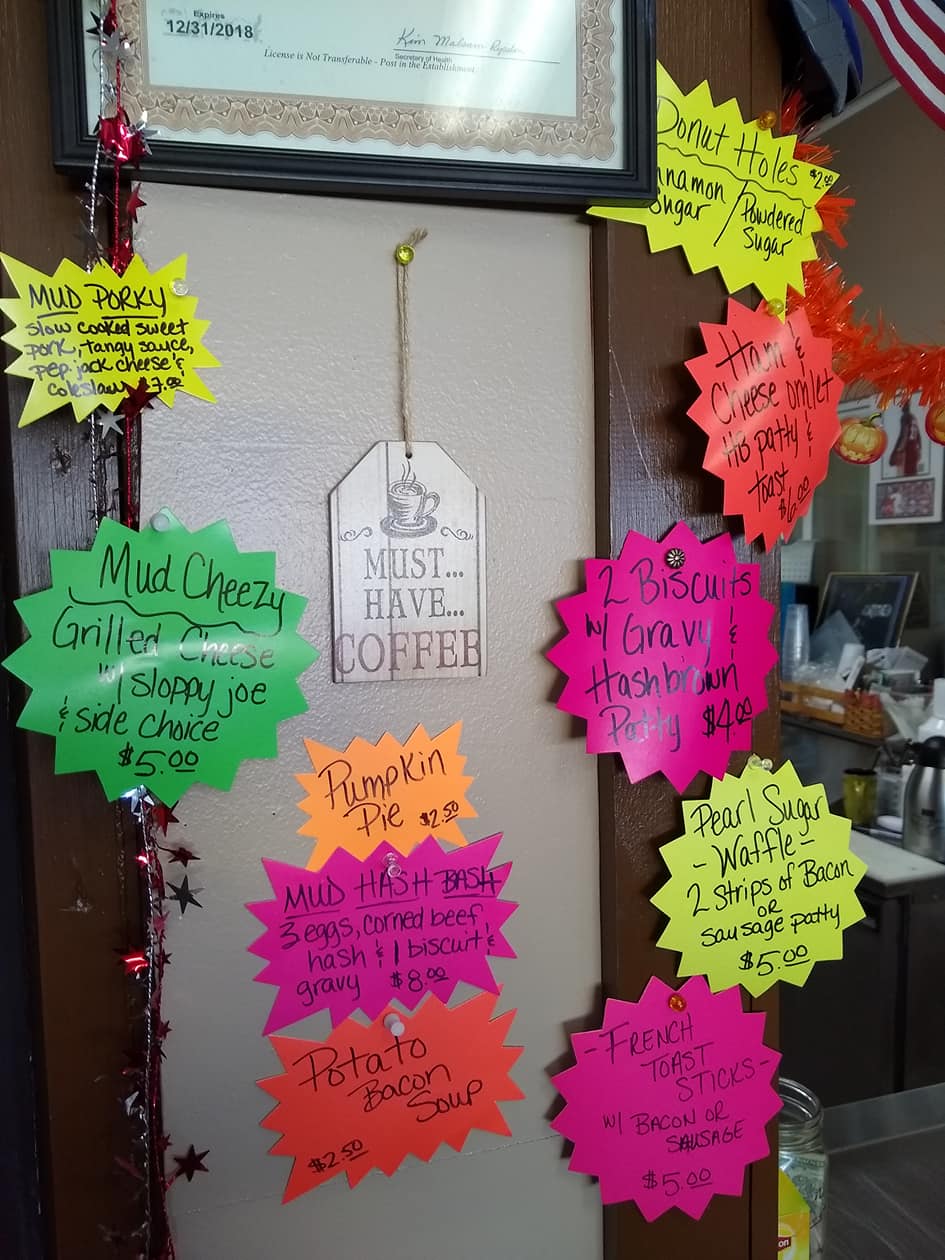 Expires
12/31/2018
Secretary of Health
License is Not Transferable - Post in the Establishment
Donut Holes $2.00
Sugar / Powdered
Sugar
MUD PORKY
slow cooked sweet
pork, tangy sauce,
pep.jack cheese &
coleslaw $7.00
Ham &
Cheese omlet
HB patty &
toast
$6.00
MUST...
HAVE...
COFFEE
Mud Cheezy
Grilled Cheese
w/ sloppy joe
& side choice
$5.00
2 Biscuits
w/ Gravy &
Hashbrown
Patty $4.00
Pumpkin
Pie $2.50
MUD HASH BASH
3 eggs, corned beef
hash & 1 biscuit &
gravy $8.00
Pearl Sugar
- Waffle -
2 Strips of Bacon
or
sausage patty
$5.00
Potato
Bacon
Soup
$2.50
- FRENCH
TOAST
STICKS -
W/ BACON OR
SAUSAGE
$5.00